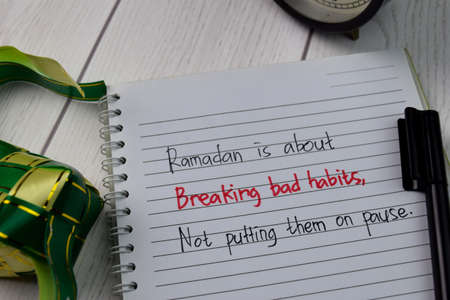 Ramadan is about
Breaking bad habits,
Not putting them on pause.